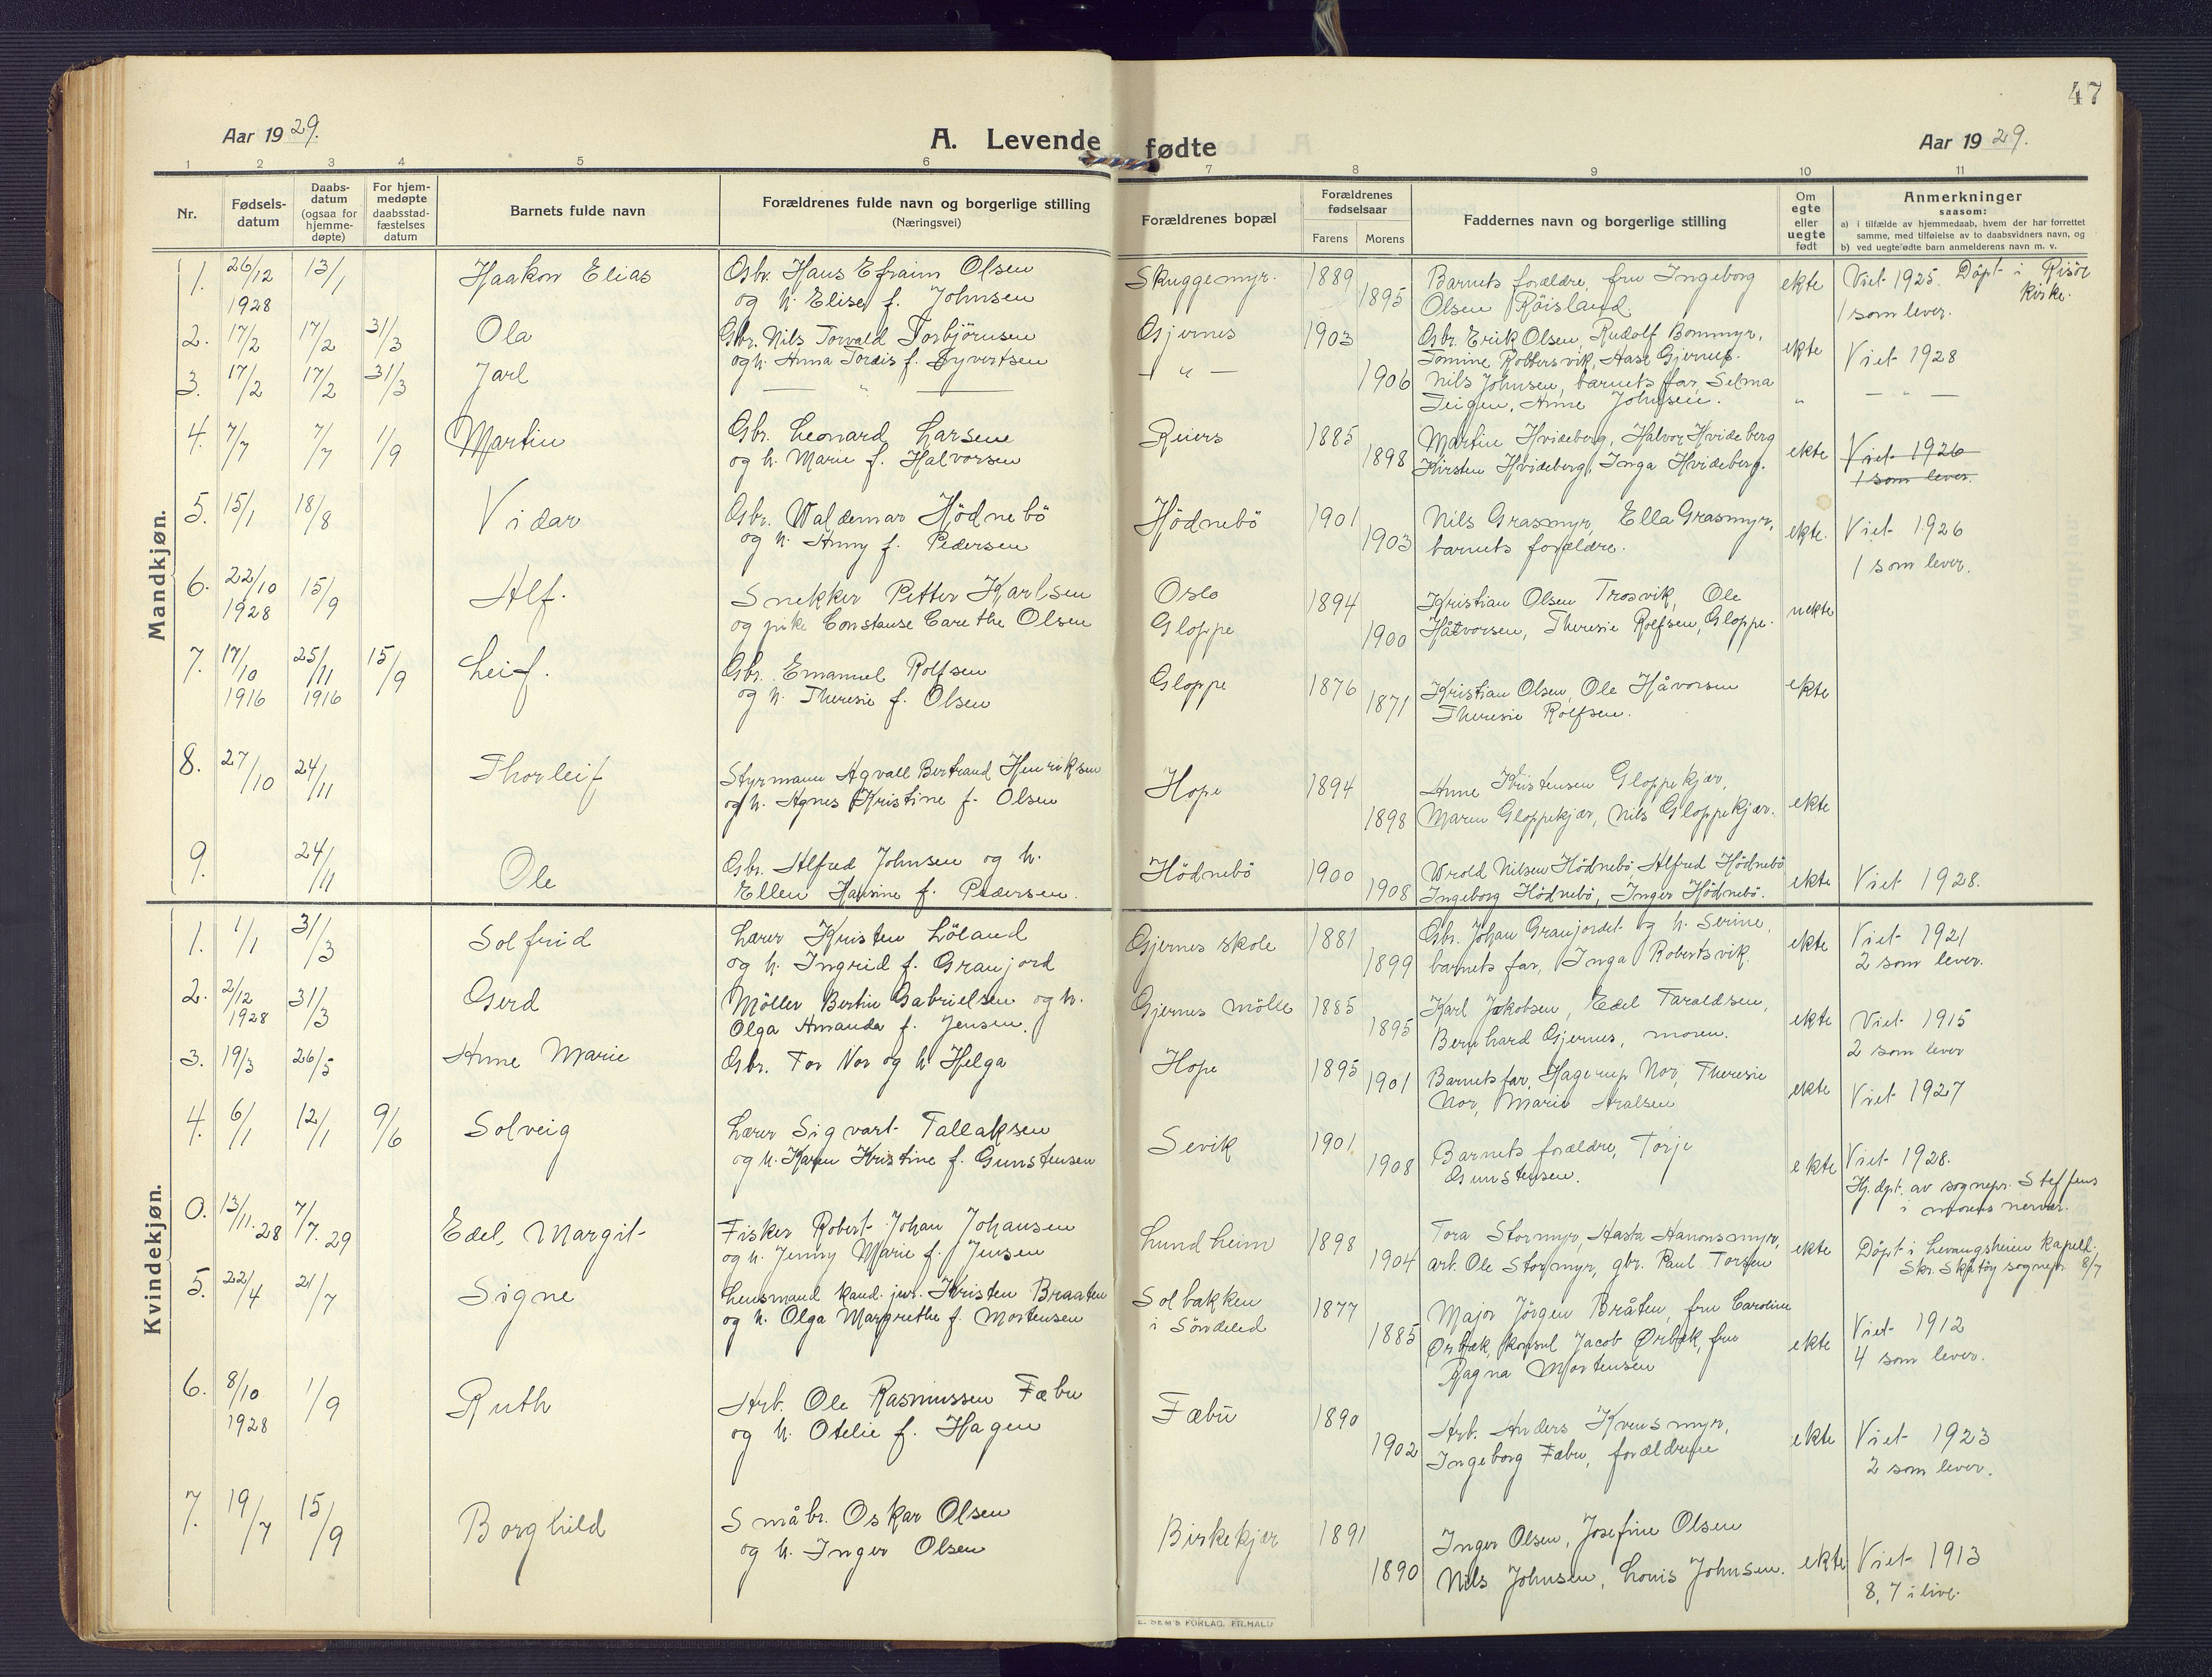 47
Aar 1929.
A. Levende fødte
Aar 1929.
1 2 3 4 5 6 7 8 9 10 11
Nr.
Fødsels-
datum
Daabs-
datum
(ogsaa for
hjemme-
døpte)
For hjem-
medøpte
daabsstad-
fæstelses
datum
Barnets fulde navn
Forældrenes fulde navn og borgerlige stilling
(Næringsvei)
Forældrenes bopæl
Forældrenes
fødselsaar
Farens Morens
Faddernes navn og borgerlige stilling
Om
egte
eller
uegte
født
Anmerkninger
saasom:
a) i tilfælde av hjemmedaab, hvem der har forrettet
samme, med tilføielse av to daabsvidners navn, og
b) ved uegte fødte barn anmelderens navn m. v.
Mandkjøn.
1. 26/12 1928 13/1 Haakon Elias
Gbr. Hans Efraim Olsen
og h. Elise f. Johnsen
Skuggemyr. 1889 1895
Barnets forældre, fru Ingeborg
Olsen Röisland.
ekte
Viet 1925. Döpt i Risör
kirke.
1 som lever.
2. 17/2 17/2 31/3 Ola
Gbr. Nils Torvald Torbjörnsen
og h. Anna Tordis f. Syvertsen
Gjernes 1903
Gbr. Erik Olsen, Rudolf Bommyr,
Tomine Robbersvik, Aase Gjernes.
ekte
Viet 1928
3. 17/2 17/2 31/3 Jarl
— " —
— " — 1906
Nils Johnsen, barnets far, Selma
Teigen, Anne Johnsen.
"
— " —
4. 7/7 7/7 1/9 Martin
Gbr. Leonard Larsen
og h. Marie f. Halvorsen
Reiers 1885 1898
Martin Hvideberg, Halvor Hvideberg
Kirsten Hvideberg, Inga Hvideberg.
ekte
Viet 1926
1 som lever.
5. 15/1 18/8 Vidar
Gbr. Waldemar Hödnebö
og h. Anny f. Pedersen
Hödnebö 1901 1903
Nils Grasmyr, Ella Grasmyr,
barnets forældre.
ekte.
Viet 1926
1 som lever.
6. 22/10 1928 15/9 Alf.
Snekker Petter Karlsen
og pike Constanse Carethe Olsen
Oslo
Gloppe
1894 1900
Kristian Olsen Trosvik, Ole
Håvorsen, Theresie Rolfsen, Gloppe.
uekte
7. 17/10 1916 25/11 1916 15/9 Leif.
Gbr. Emanuel Rolfsen
og h. Theresie f. Olsen
Gloppe 1876 1871
Kristian Olsen, Ole Håvorsen
Theresie Rolfsen.
ekte
8. 27/10 24/11 Thorleif
Styrmann Agvall Bertrand Henriksen
og h. Agnes Kristine f. Olsen
Hope 1894 1898
Anne Kristensen Gloppekjær,
Maren Gloppekjær, Nils Gloppekjær.
ekte
9. 24/11 Ole
Gbr. Alfred Johnsen og h.
Ellen Hansine f. Pedersen.
Hödnebö 1900 1908
Wrold Nilsen Hödnebö, Alfred Hödnebö
Ingeborg Hödnebö, Inger Hödnebö.
ekte
Viet 1928.
Kvindekjøn.
1. 1/1 31/3 Solfrid
Lærer Kristen Löland
og h. Ingrid f. Granjord
Gjernes skole 1881 1899
Gbr. Johan Granjordet og h. Serine,
barnets far, Inga Robertsvik.
ekte
Viet 1921
2 som lever.
2. 2/12 1928 31/3 Gerd
Möller Bertin Gabrielsen og h.
Olga Amanda f. Jensen.
Gjernes mölle 1885 1895
Karl Jakobsen, Edel Taraldsen,
Bernhard Gjernes, moren.
ekte
Viet 1915
2 som lever
3. 19/3 26/5 Anne Marie
Gbr. Tor Nor og h. Helga
Hope 1895 1901
Barnets far, Hagerup Nor, Theresie
Nor, Marie Aralsen
ekte
Viet 1927
4. 6/1 12/1 9/6 Solveig
Lærer Sigvart Tallaksen
og h. Karen Kristine f. Gunstensen
Sevik 1901 1908
Barnets forældre, Torje
Gunstensen.
ekte
Viet 1928.
Hj.dpt. av sognepr. Steffens
i morens nerver.
0. 13/11. 28 7/7. 29 Edel Margit
Fisker Robert Johan Johansen
og h. Jenny Marie f. Jensen
Lundheim 1898 1904
Tora Stormyr, Aasta Aanonsmyr,
arb. Ole Stormyr, gbr. Paul Torsen
ekte
Döpt i Levangsheim kapell.
Skr. Skåtöy sognepr. 8/7
5. 22/4 21/7 Signe
Lensmand kand. jur. Kristen Braaten
og h. Olga Margrethe f. Mortensen
Solbakken
i Söndeled
1877 1885
Major Jörgen Bråten, fru Caroline
Ørbæk, konsul Jacob Ørbæk, fru
Ragna Mortensen
ekte
Viet 1912
4 som lever.
6. 8/10 1928 1/9 Ruth
Arb. Ole Rasmussen Fæbu
og h. Otelie f. Hagen
Fæbu 1890 1902
Arb. Anders Kvensmyr,
Ingeborg Fæbu, forældrene
ekte
Viet 1923
2 som lever.
7. 19/7 15/9 Borghild
Småbr. Oskar Olsen
og h. Inger Olsen
Birkekjær 1891 1890
Inger Olsen, Josefine Olsen
Nils Johnsen, Louis Johnsen.
ekte
Viet 1913
8, 7 i live.
E. SEM'S FORLAG, FR.HALD